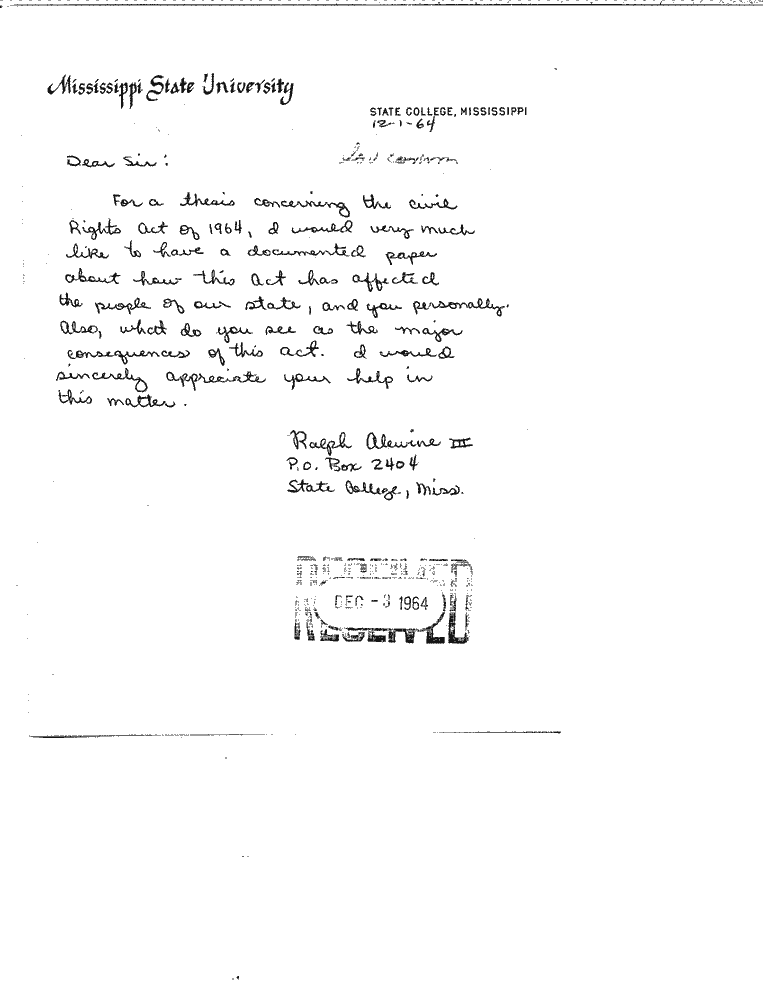 Mississippi State University
STATE COLLEGE, MISSISSIPPI
12-1-64
Dear Sir:
For a thesis concerning the civil
Rights Act of 1964, I would very much
like to have a documented paper
about how this act has affected
the people of our state, and you personally.
Also, what do you see as the major
consequences of this act. I would
sincerely appreciate your help in
this matter.
Ralph Alewine III
P.O. Box 2404
State College, Miss.
RECEIVED
DEC - 3 1964
RECEIVED